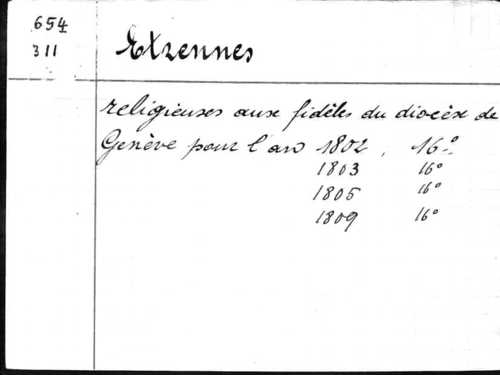 654
311
Etrennes
religieuses aux fidèles du diocèse de
Genève pour l'an 1802, 16°
1803 16°
1805 16°
1809 16°